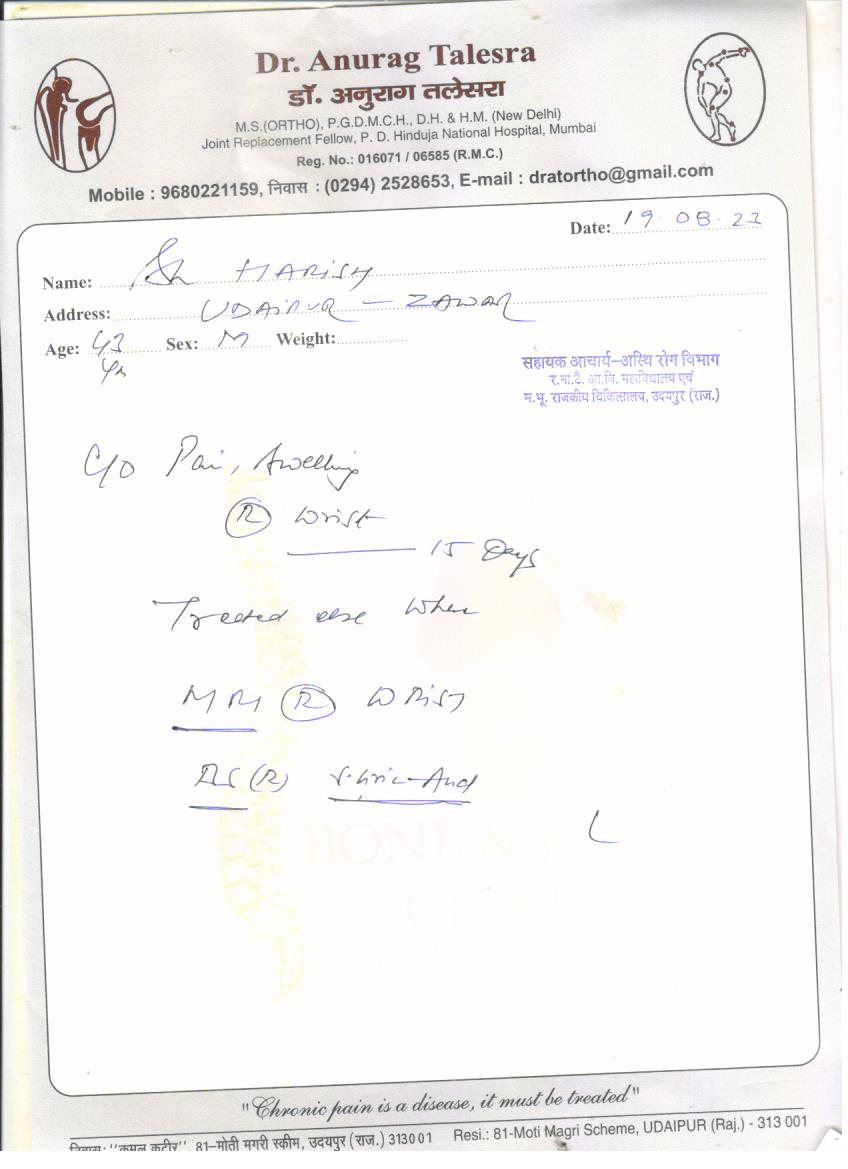 Dr. Anurag Talesra
डॉ. अनुराग तलेसरा
M.S.(ORTHO), P.G.D.M.C.H., D.H. & H.M. (New Delhi)
Joint Replacement Fellow, P. D. Hinduja National Hospital, Mumbai
Reg. No.: 016071 / 06585 (R.M.C.)
Mobile : 9680221159, निवास : (0294) 2528653, E-mail : dratortho@gmail.com
Date: 19.08.23
Name: Sh HARISH
Address: UDAIPUR - ZAWAR
Age: 43 yrs Sex: M Weight:
सहायक आचार्य–अस्थि रोग विभाग
र.ना.टै. आ.वि. महाविद्यालय एवं
म.भू. राजकीय चिकित्सालय, उदयपुर (राज.)
C/O Pain, Swelling
(R) Wrist
15 Days
Treated else where
(R) WRIST
(R)
BONE &
"Chronic pain is a disease, it must be treated"
निवास: "कमल कुटीर", 81–मोती मगरी स्कीम, उदयपुर (राज.) 313001 Resi.: 81-Moti Magri Scheme, UDAIPUR (Raj.) - 313 001